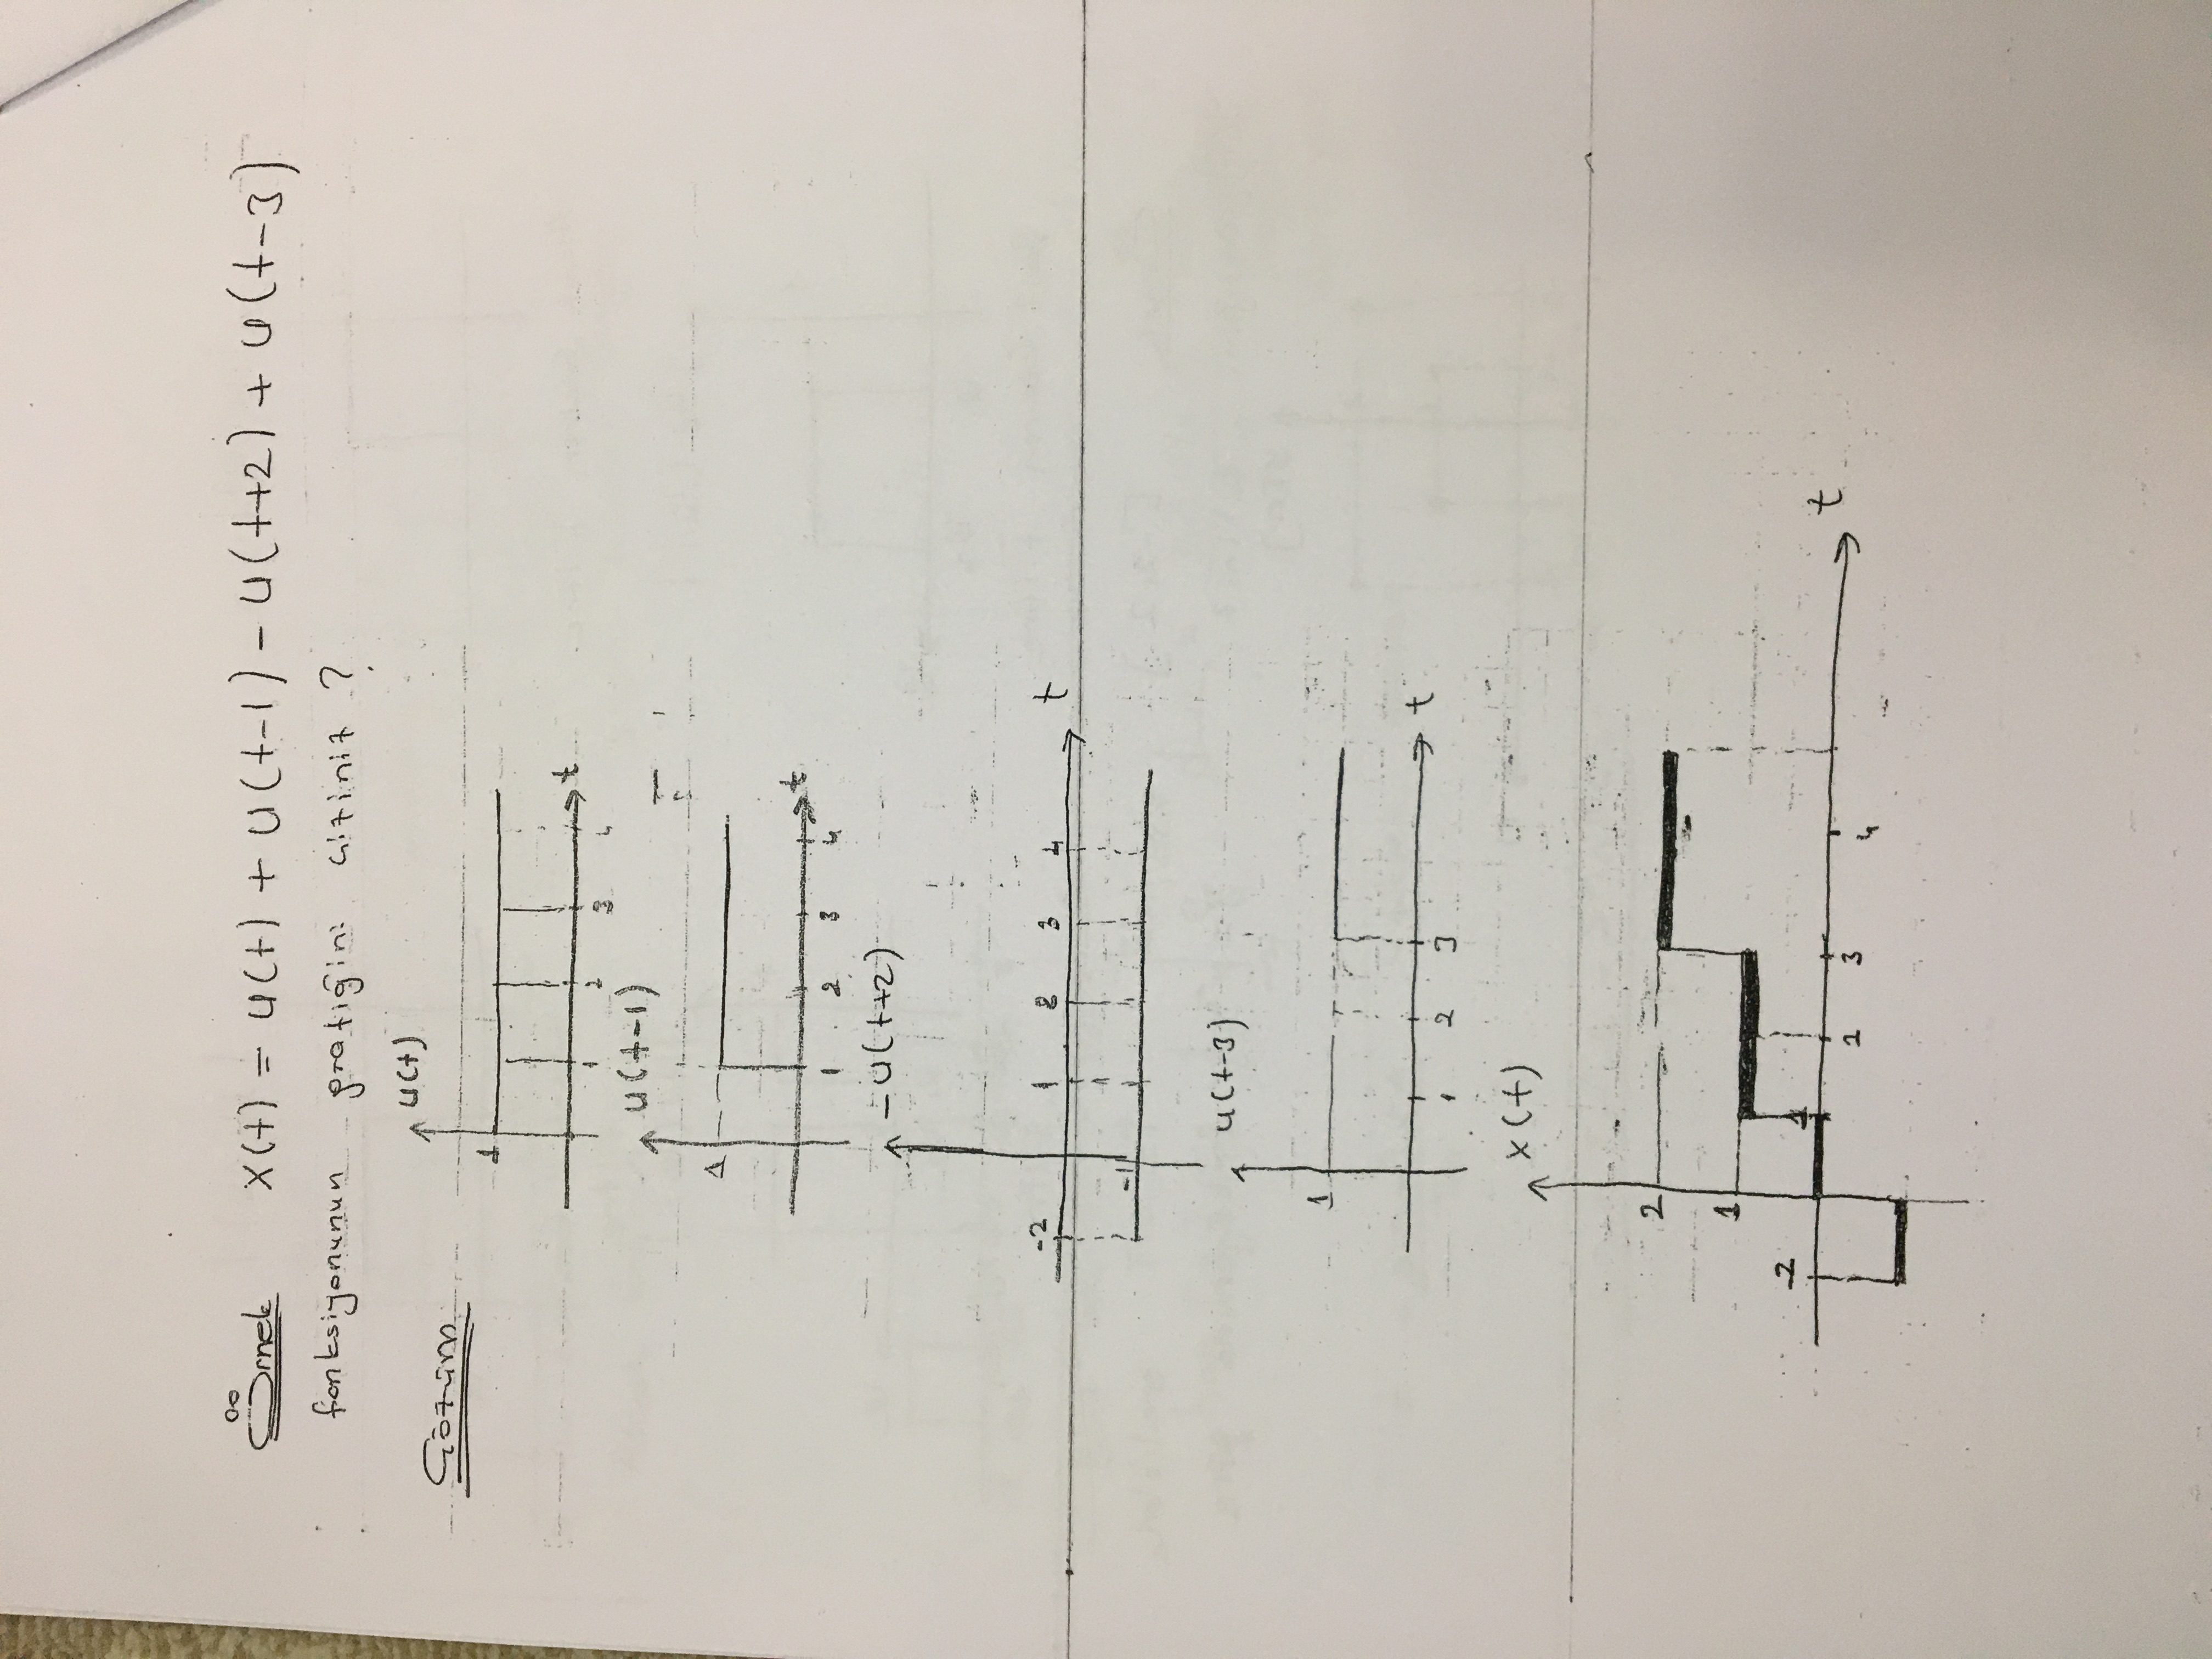 Örnek x(t) = u(t) + u(t-1) - u(t+2) + u(t-3)
fonksiyonunun grafiğini çiziniz ?
Çözüm
u(t)
1
t
1 2 3 4
u(t-1)
1
t
1 2 3 4
-u(t+2)
-2 1 2 3 4 t
-1
u(t-3)
1
t
1 2 3
x(t)
2
1
-2 1
t
2 3 4